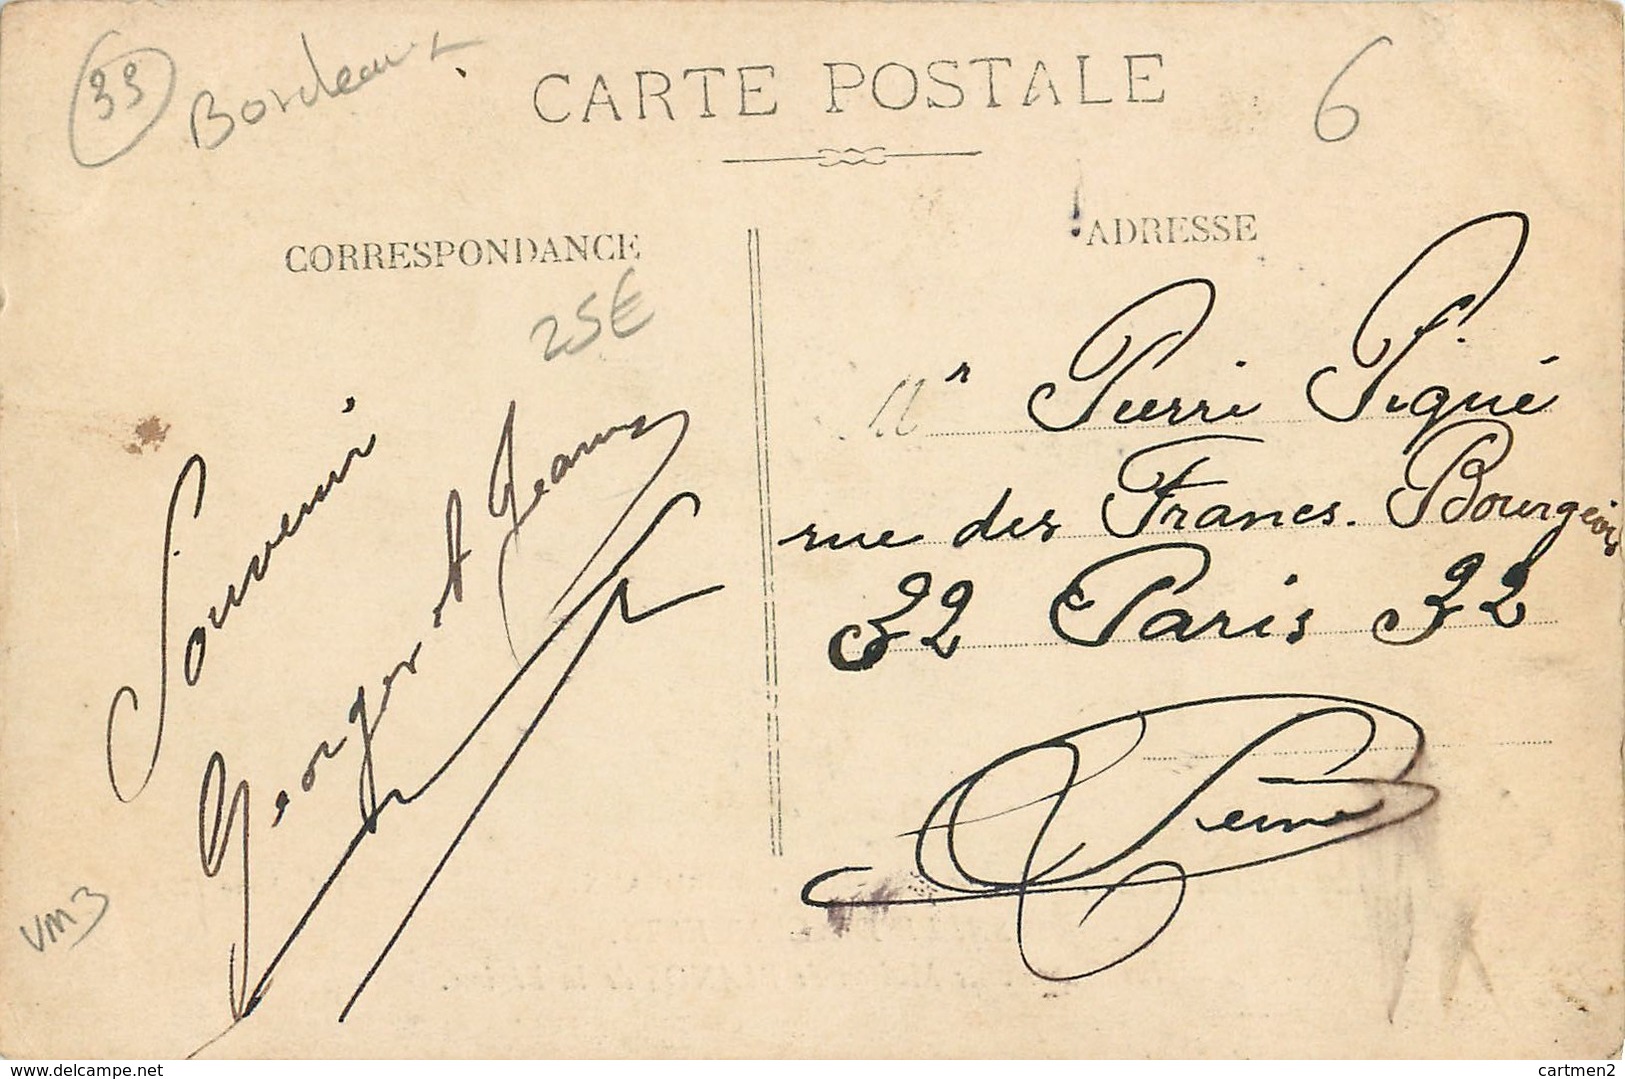 33 Bordeaux
CARTE POSTALE
6
CORRESPONDANCE
25€
Souvenir
Georges et Jeanne
VM3
ADRESSE
Mr Pierre Pigué
rue des Francs. Bourgeois
32 Paris 32
Seine
www.delcampe.net
cartmen2